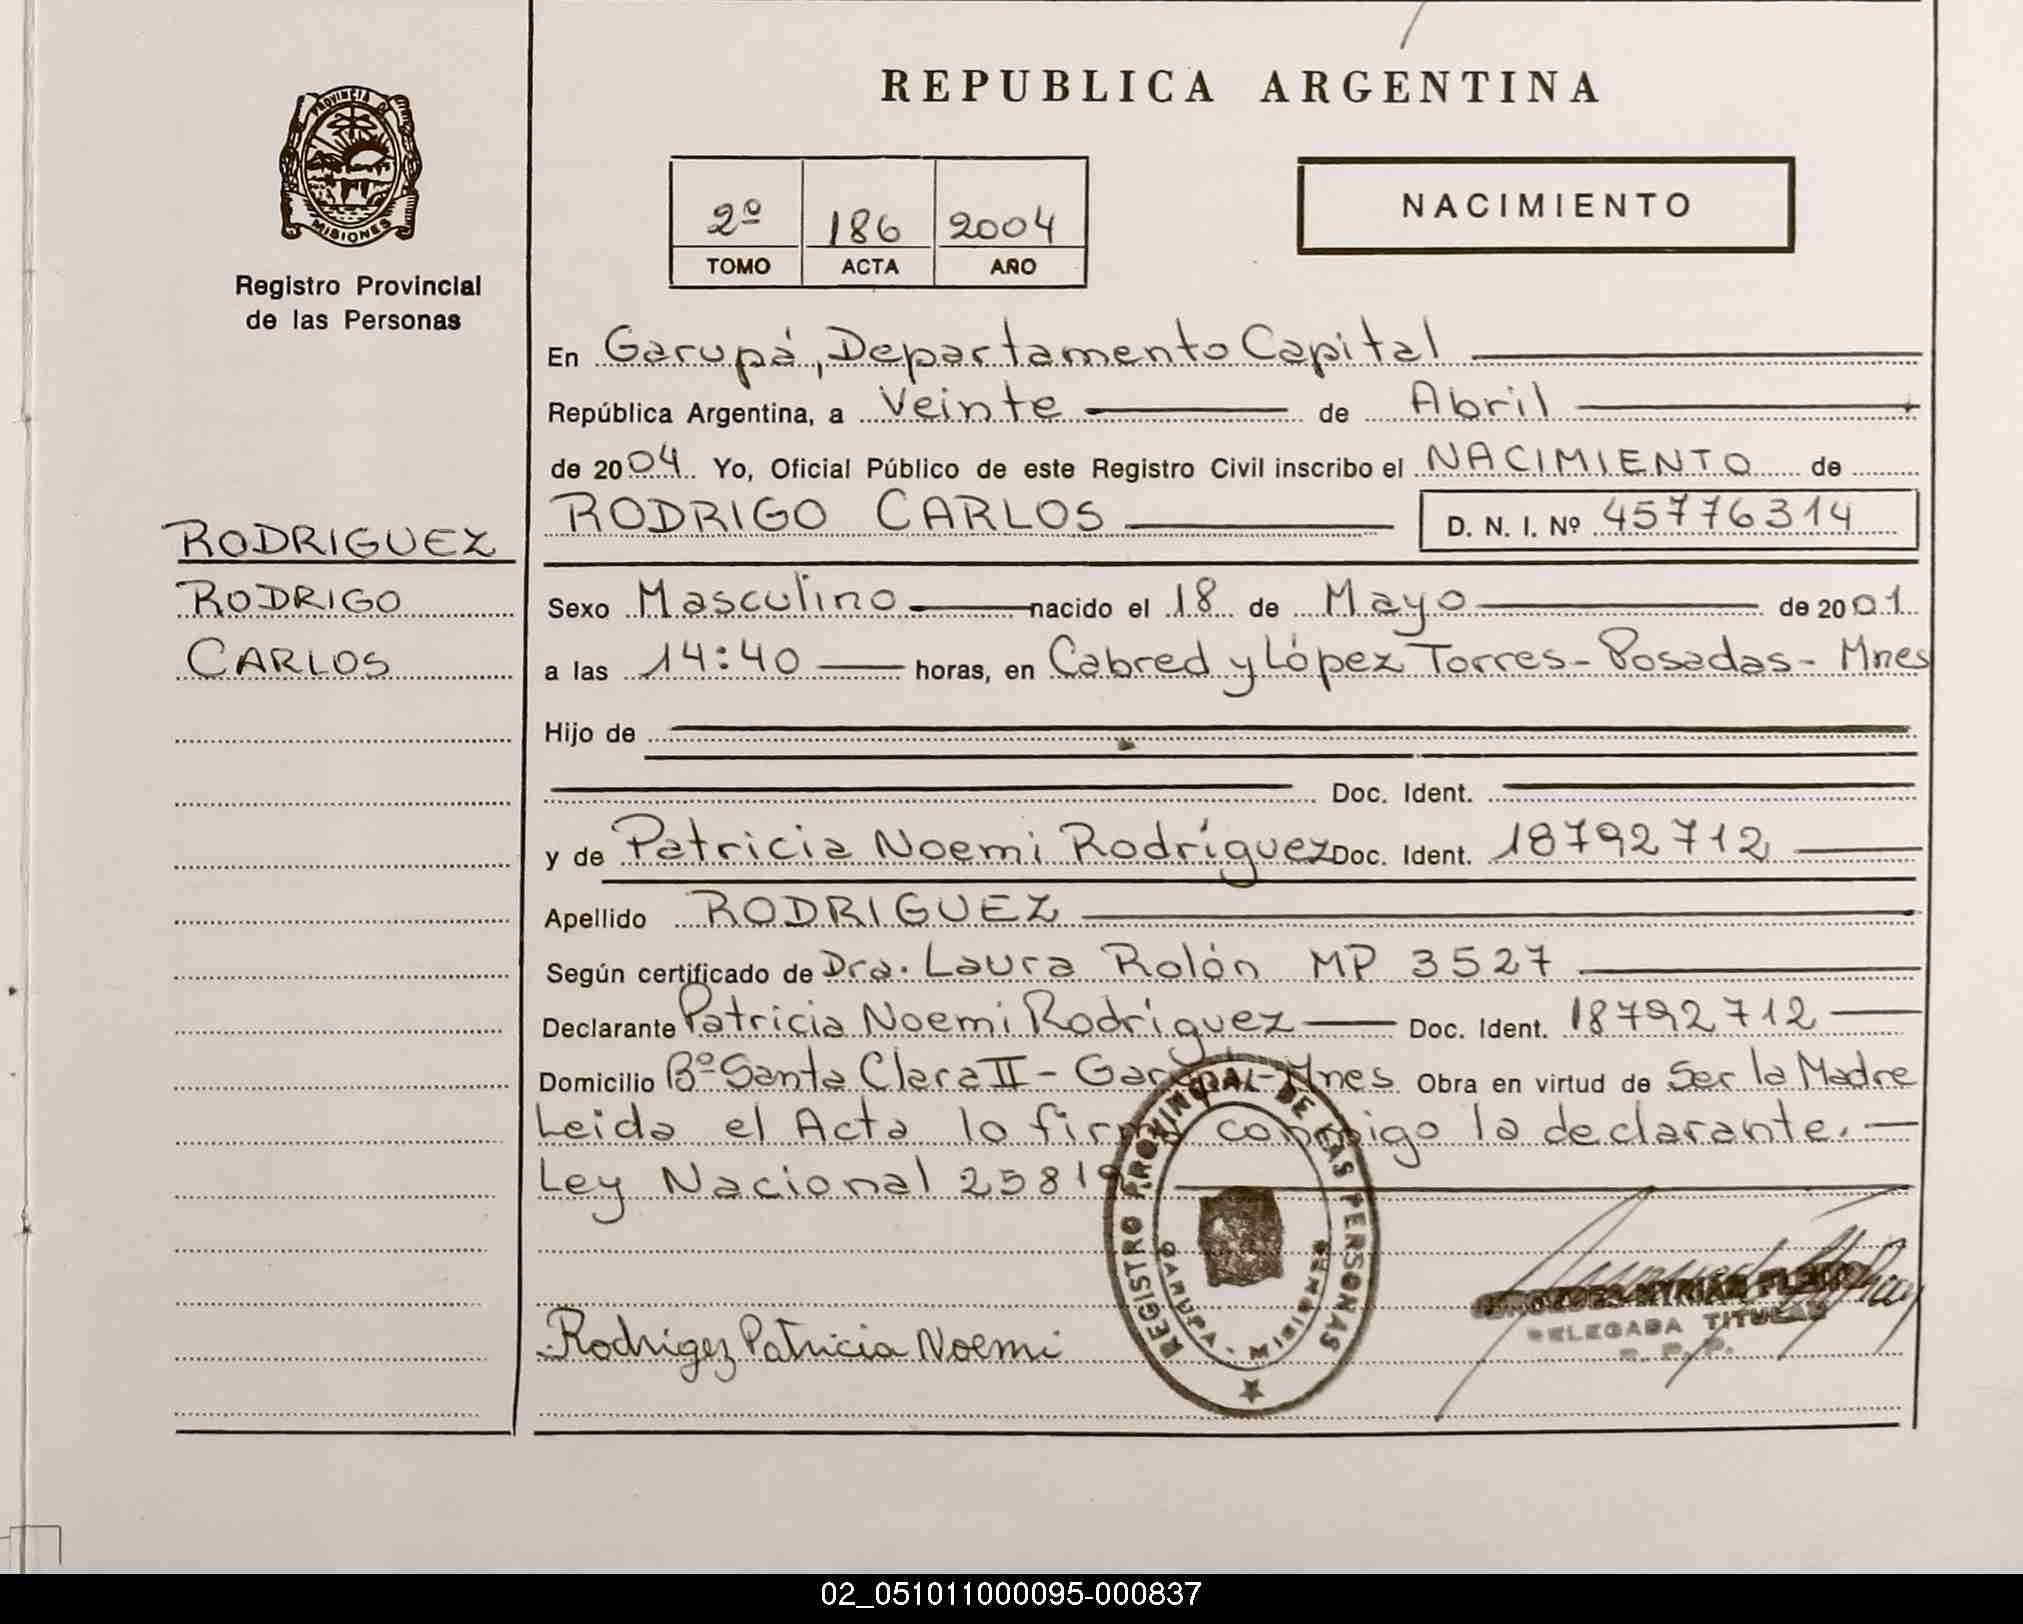 REPUBLICA ARGENTINA
PROVINCIA DE
MISIONES
Registro Provincial
de las Personas
2º 186 2004
TOMO ACTA AÑO
NACIMIENTO
En Garupá, Departamento Capital
República Argentina, a Veinte de Abril
de 2004. Yo, Oficial Público de este Registro Civil inscribo el NACIMIENTO de
RODRIGO CARLOS D. N. I. Nº 45776314
RODRIGUEZ
RODRIGO
CARLOS
Sexo Masculino nacido el 18 de Mayo de 2001
a las 14:40 horas, en Cabred y López Torres - Posadas - Mnes
Hijo de
Doc. Ident.
y de Patricia Noemi Rodríguez Doc. Ident. 18792712
Apellido RODRIGUEZ
Según certificado de Dra. Laura Rolón MP 3527
Declarante Patricia Noemi Rodríguez Doc. Ident. 18792712
Domicilio Bº Santa Clara II - Garupá - Mnes Obra en virtud de Ser la Madre
Leida el Acta lo firma conmigo la declarante.
Ley Nacional 25819
REGISTRO PROVINCIAL DE LAS PERSONAS
GARUPA - MISIONES
Rodrigez Patricia Noemi
MYRIAM
DELEGADA TITULAR
R. P. P.
02_051011000095-000837